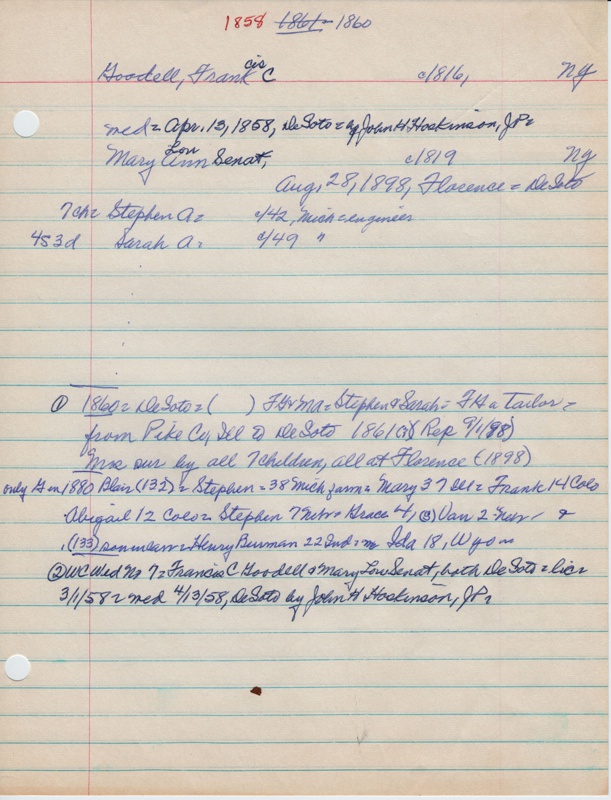 1858 1861= 1860
Goodell, Francis C c/1816, NY
med = Apr. 13, 1858, DeSoto = by John H Hoskinson, JP=
Mary Ann Lou Senat, c/1819 NY
Aug, 28, 1898, Florence = DeSoto
7ch= Stephen A= c/42, Mich = engineer
4s 3d Sarah A= c/49 "
① 1860= DeSoto = ( ) FG & Ma = Stephen & Sarah = FG a Tailor =
from Pike Co, Ill to DeSoto 1861 (3)( Rep 9/1/98)
Mrs sur by all 7 children, all at Florence (1898)
only G in 1880 Blair (132) = Stephen = 38 Mich farm = Mary 37 Ill = Frank 14 Colo
Abigail 12 Colo = Stephen 7 Nebr = Grace 4, (3) Van 2 Nebr &
(133) soninlaw = Henry Burman 22 Ind = m Ida 18, Wyo =
② WC Wed No 7 = Francis C Goodell & Mary Lou Senat, both DeSoto = lic =
3/1/58 = med 4/13/58, DeSoto by John H Hoskinson, JP=